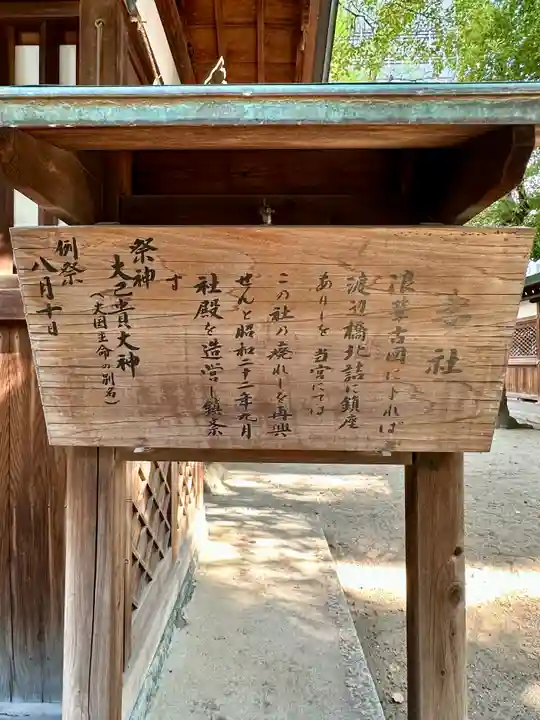 社
浪華古図によれば
渡辺橋北詰に鎮座
ありしを 当宮にては
この社の廃れしを再興
せんと昭和二十二年九月
社殿を造営し鎮祭
す
祭神
大己貴大神
(大国主命の別名)
例祭
八月十日